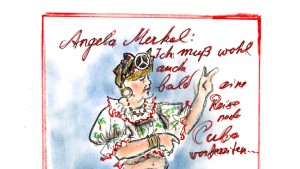 Angela Merkel:
Ich muß wohl
auch
bald eine
Reise
nach
Cuba
vorbereiten...